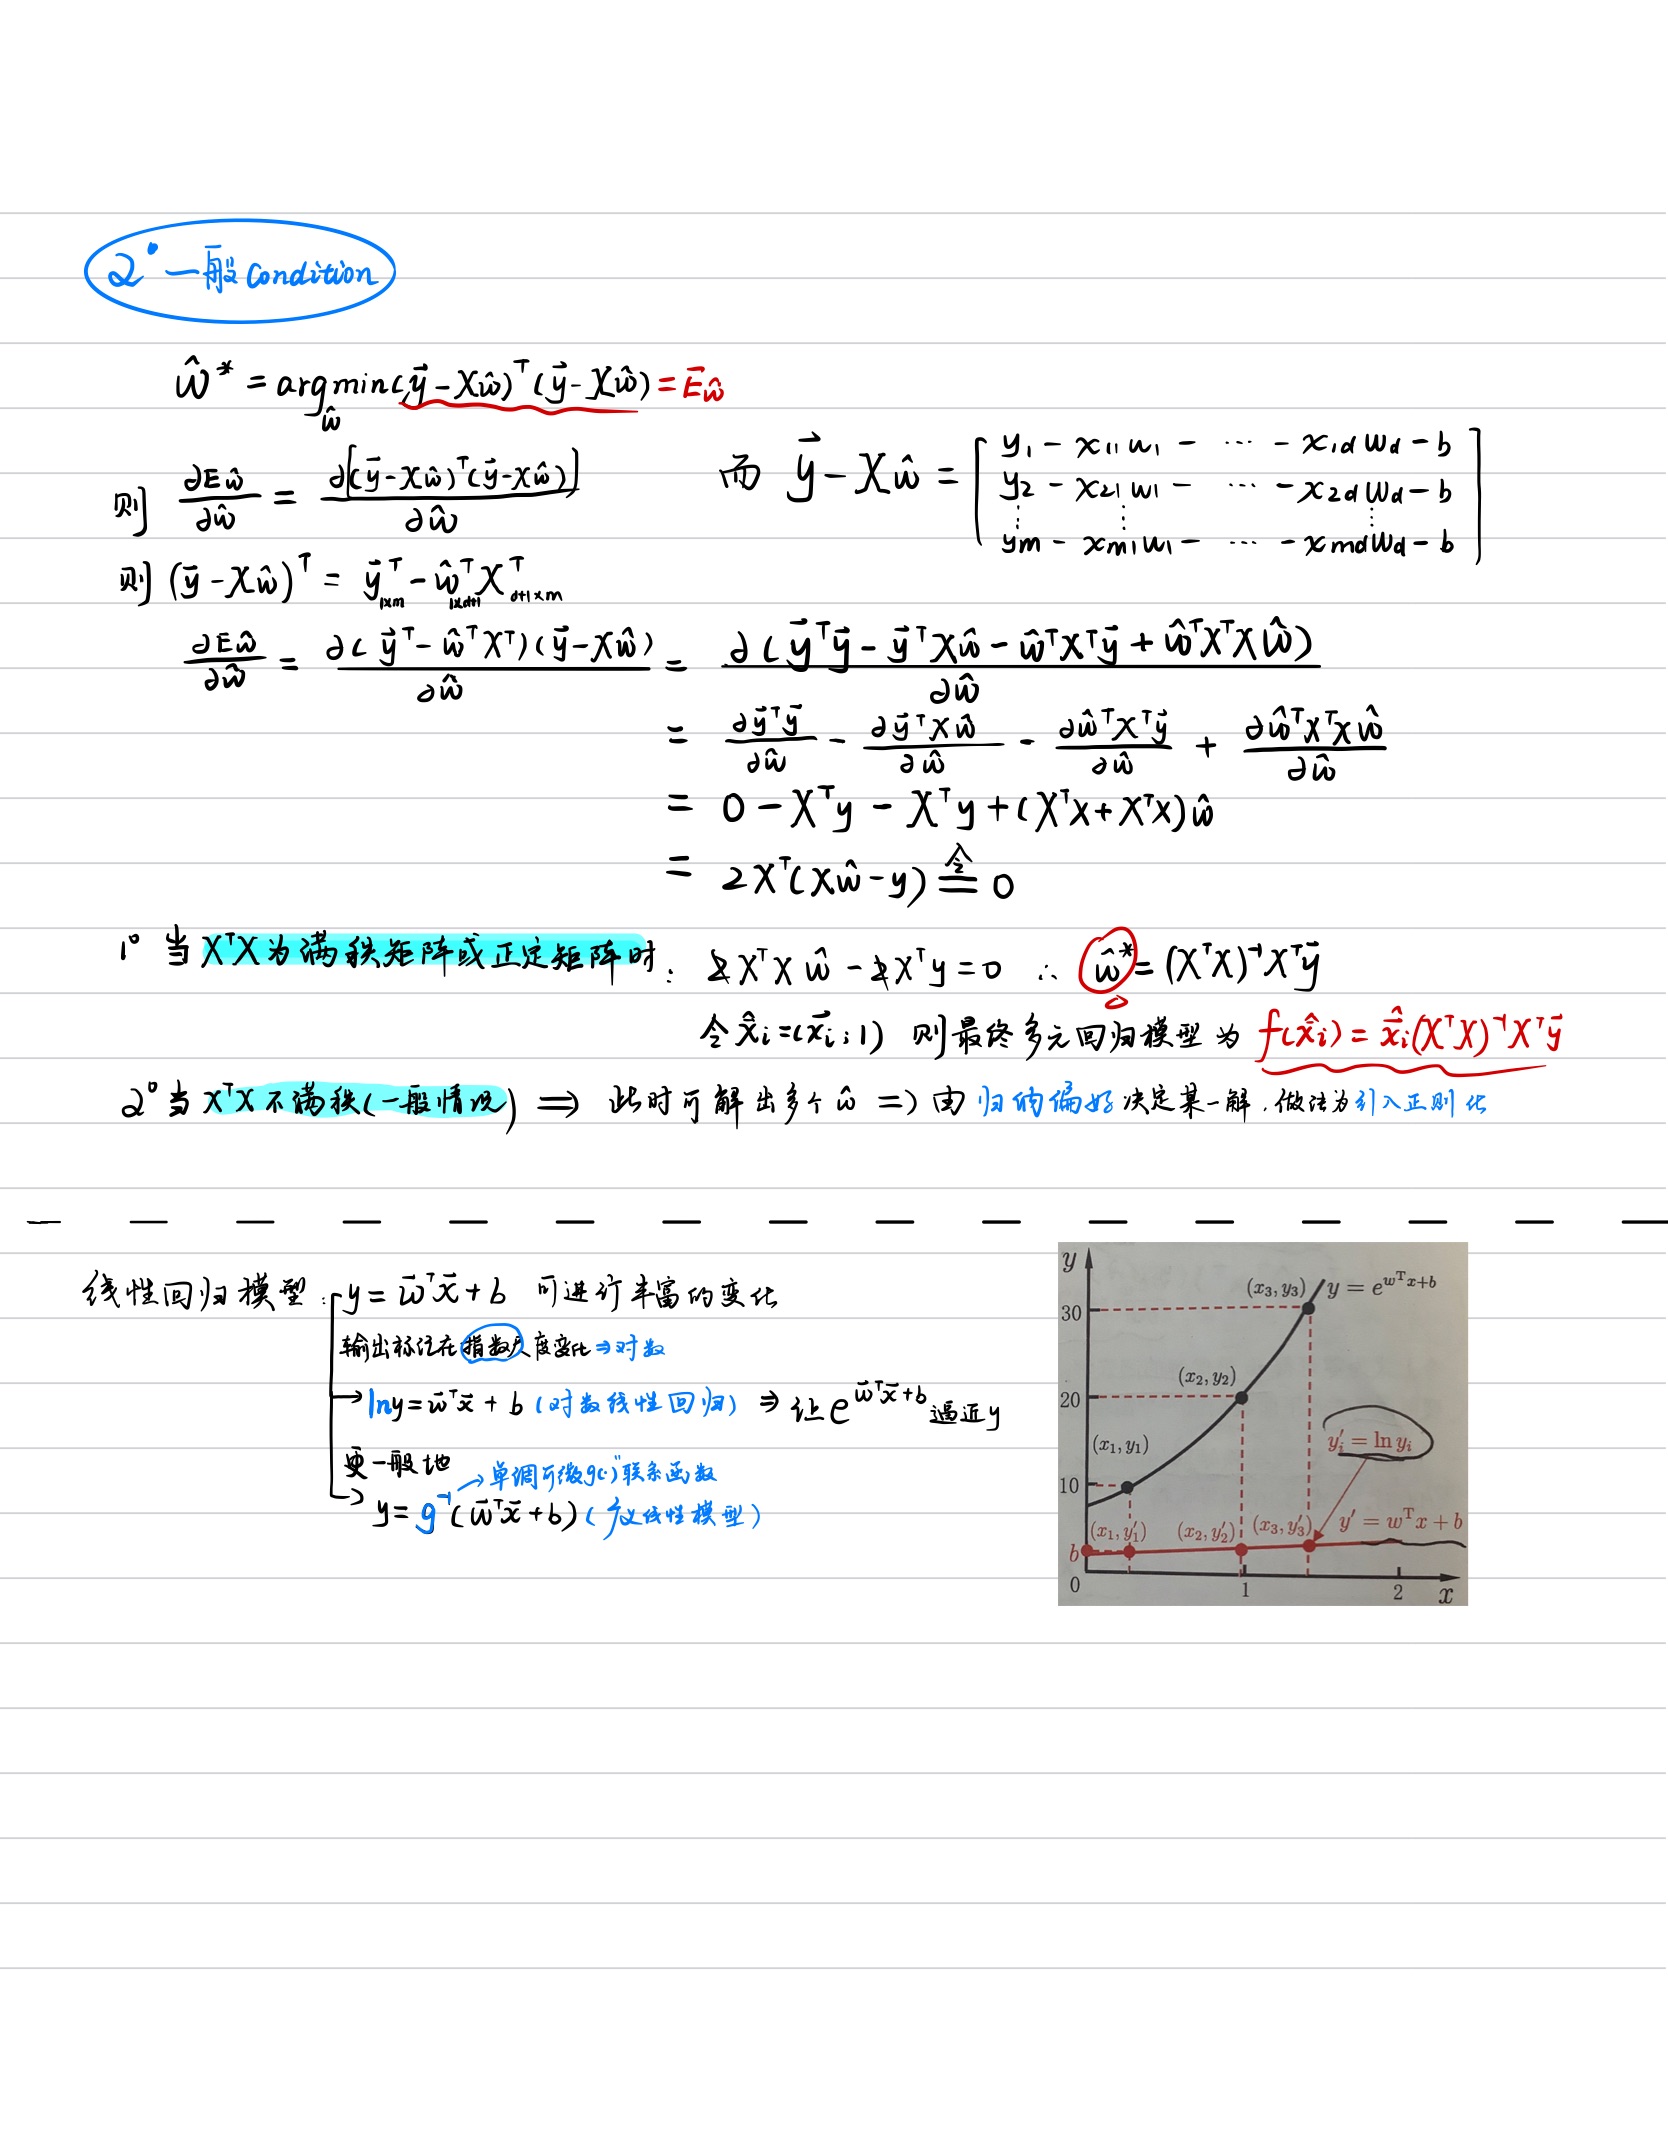 2° 一般 Condition
ŵ* = argmin_ŵ (y⃗ - Xŵ)ᵀ(y⃗ - Xŵ) = E_ŵ
则 ∂E_ŵ/∂ŵ = ∂[(y⃗ - Xŵ)ᵀ(y⃗ - Xŵ)]/∂ŵ
而 y⃗ - Xŵ = [ y₁ - x₁₁w₁ - ⋯ - x₁dwd - b
y₂ - x₂₁w₁ - ⋯ - x₂dwd - b
⋮ ⋮ ⋮
ym - xm₁w₁ - ⋯ - xmdwd - b ]
则 (y⃗ - Xŵ)ᵀ = y⃗ᵀ 1×m - ŵᵀ 1×d+1 Xᵀ d+1×m
∂E_ŵ/∂ŵ = ∂(y⃗ᵀ - ŵᵀXᵀ)(y⃗ - Xŵ)/∂ŵ = ∂(y⃗ᵀy⃗ - y⃗ᵀXŵ - ŵᵀXᵀy⃗ + ŵᵀXᵀXŵ)/∂ŵ
= ∂y⃗ᵀy⃗/∂ŵ - ∂y⃗ᵀXŵ/∂ŵ - ∂ŵᵀXᵀy⃗/∂ŵ + ∂ŵᵀXᵀXŵ/∂ŵ
= 0 - Xᵀy - Xᵀy + (XᵀX + XᵀX)ŵ
= 2Xᵀ(Xŵ - y) 令= 0
1° 当 XᵀX 为满秩矩阵或正定矩阵时: 2XᵀXŵ - 2Xᵀy = 0 ∴ ŵ* = (XᵀX)⁻¹Xᵀy⃗
令 x̂i = (x⃗i; 1) 则最终多元回归模型为 f(x̂i) = x̂i(XᵀX)⁻¹Xᵀy⃗
2° 当 XᵀX 不满秩(一般情况) ⟹ 此时可解出多个 ŵ ⇒ 由归纳偏好决定某一解, 做法为引入正则化
线性回归模型: y = w⃗ᵀx⃗ + b 可进行丰富的变化
输出标记在指数尺度变化 ⇒ 对数
→ lny = w⃗ᵀx⃗ + b (对数线性回归) ⇒ 让 e^(w⃗ᵀx⃗+b) 逼近 y
更一般地
→ 单调可微g(·)"联系函数
→ y = g⁻¹(w⃗ᵀx⃗ + b) (广义线性模型)
y
(x₃, y₃) y = e^(wᵀx+b)
30
(x₂, y₂)
20
(x₁, y₁)
y′i = ln yi
10
(x₁, y′₁) (x₂, y′₂) (x₃, y′₃) y′ = wᵀx + b
b
0 1 2 x